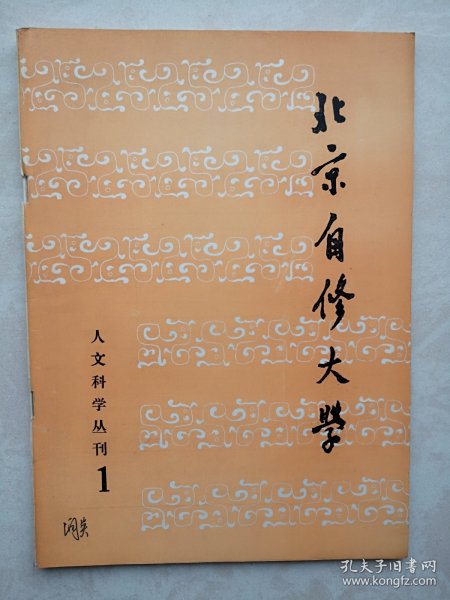 北京自修大學
人文科学丛刊
1
孔夫子旧书网
www.kongfz.com